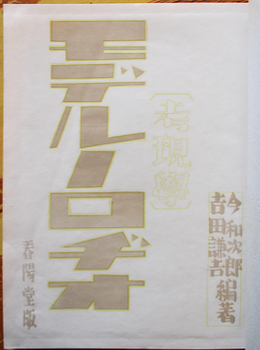 今和次郎
吉田謙吉
編著
〔考現學〕
モデルノロヂオ
春陽堂版